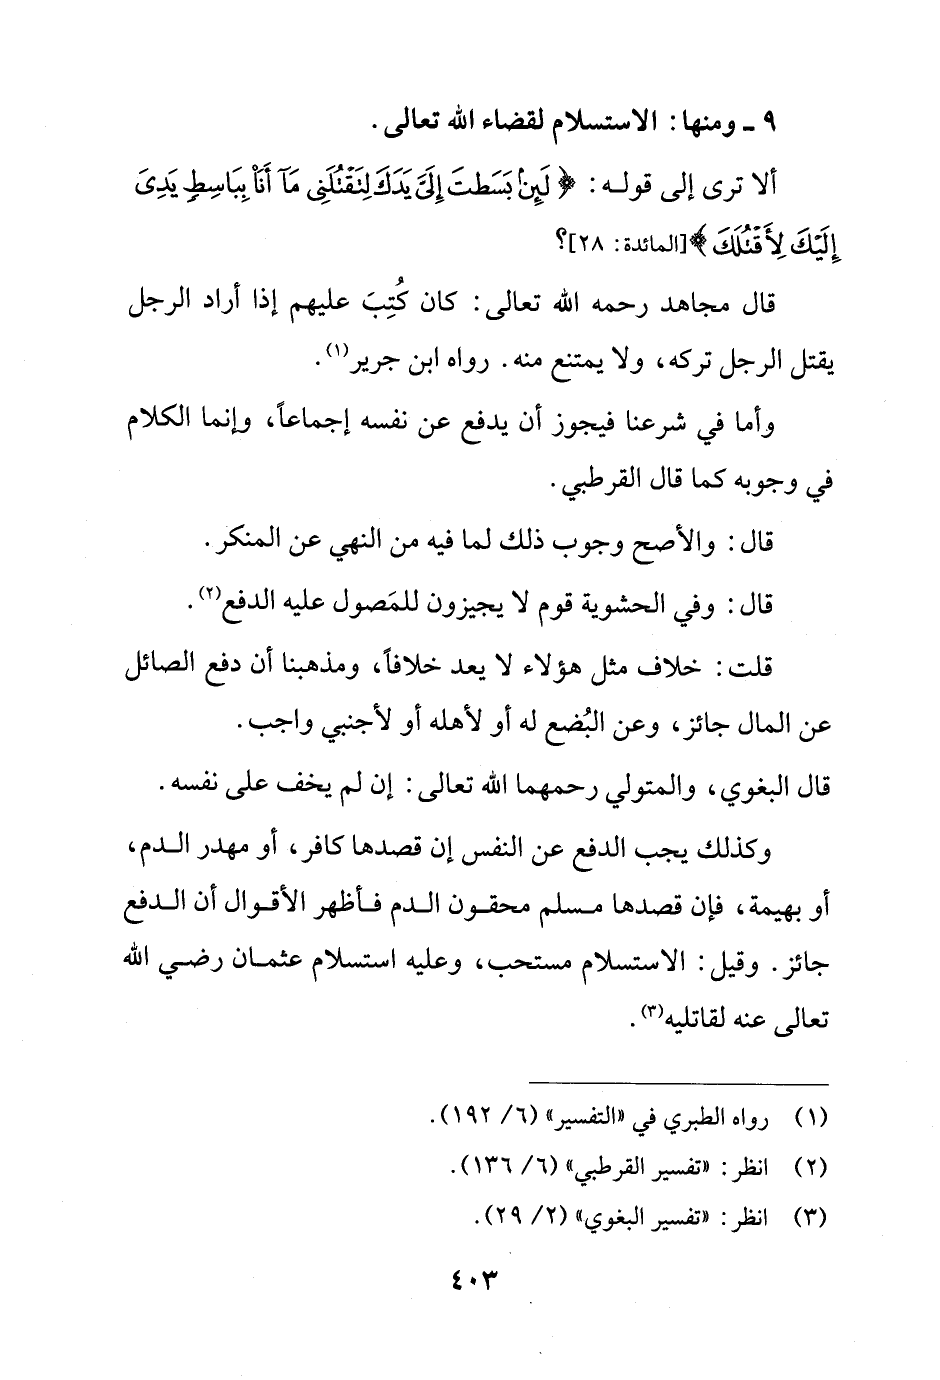 ٩ ـ ومنها: الاستسلام لقضاء الله تعالى.
ألا ترى إلى قولـه: ﴿ لَئِنۢ بَسَطتَ إِلَىَّ يَدَكَ لِتَقْتُلَنِى مَآ أَنَا۠ بِبَاسِطٍ يَدِىَ
إِلَيْكَ لِأَقْتُلَكَ ﴾[المائدة: ٢٨]؟
قال مجاهد رحمه الله تعالى: كان كُتِبَ عليهم إذا أراد الرجل
يقتل الرجل تركه، ولا يمتنع منه. رواه ابن جرير(١).
وأما في شرعنا فيجوز أن يدفع عن نفسه إجماعاً، وإنما الكلام
في وجوبه كما قال القرطبي.
قال: والأصح وجوب ذلك لما فيه من النهي عن المنكر.
قال: وفي الحشوية قوم لا يجيزون للمَصول عليه الدفع(٢).
قلت: خلاف مثل هؤلاء لا يعد خلافاً، ومذهبنا أن دفع الصائل
عن المال جائز، وعن البُضع له أو لأهله أو لأجنبي واجب.
قال البغوي، والمتولي رحمهما الله تعالى: إن لم يخف على نفسه.
وكذلك يجب الدفع عن النفس إن قصدها كافر، أو مهدر الـدم،
أو بهيمة، فإن قصدها مسـلم محقـون الـدم فـأظهر الأقـوال أن الـدفع
جائز. وقيل: الاستسلام مستحب، وعليه استسلام عثمـان رضـي الله
تعالى عنه لقاتليه(٣).
(١) رواه الطبري في «التفسير» (٦/ ١٩٢).
(٢) انظر: «تفسير القرطبي» (٦/ ١٣٦).
(٣) انظر: «تفسير البغوي» (٢/ ٢٩).
٤٠٣